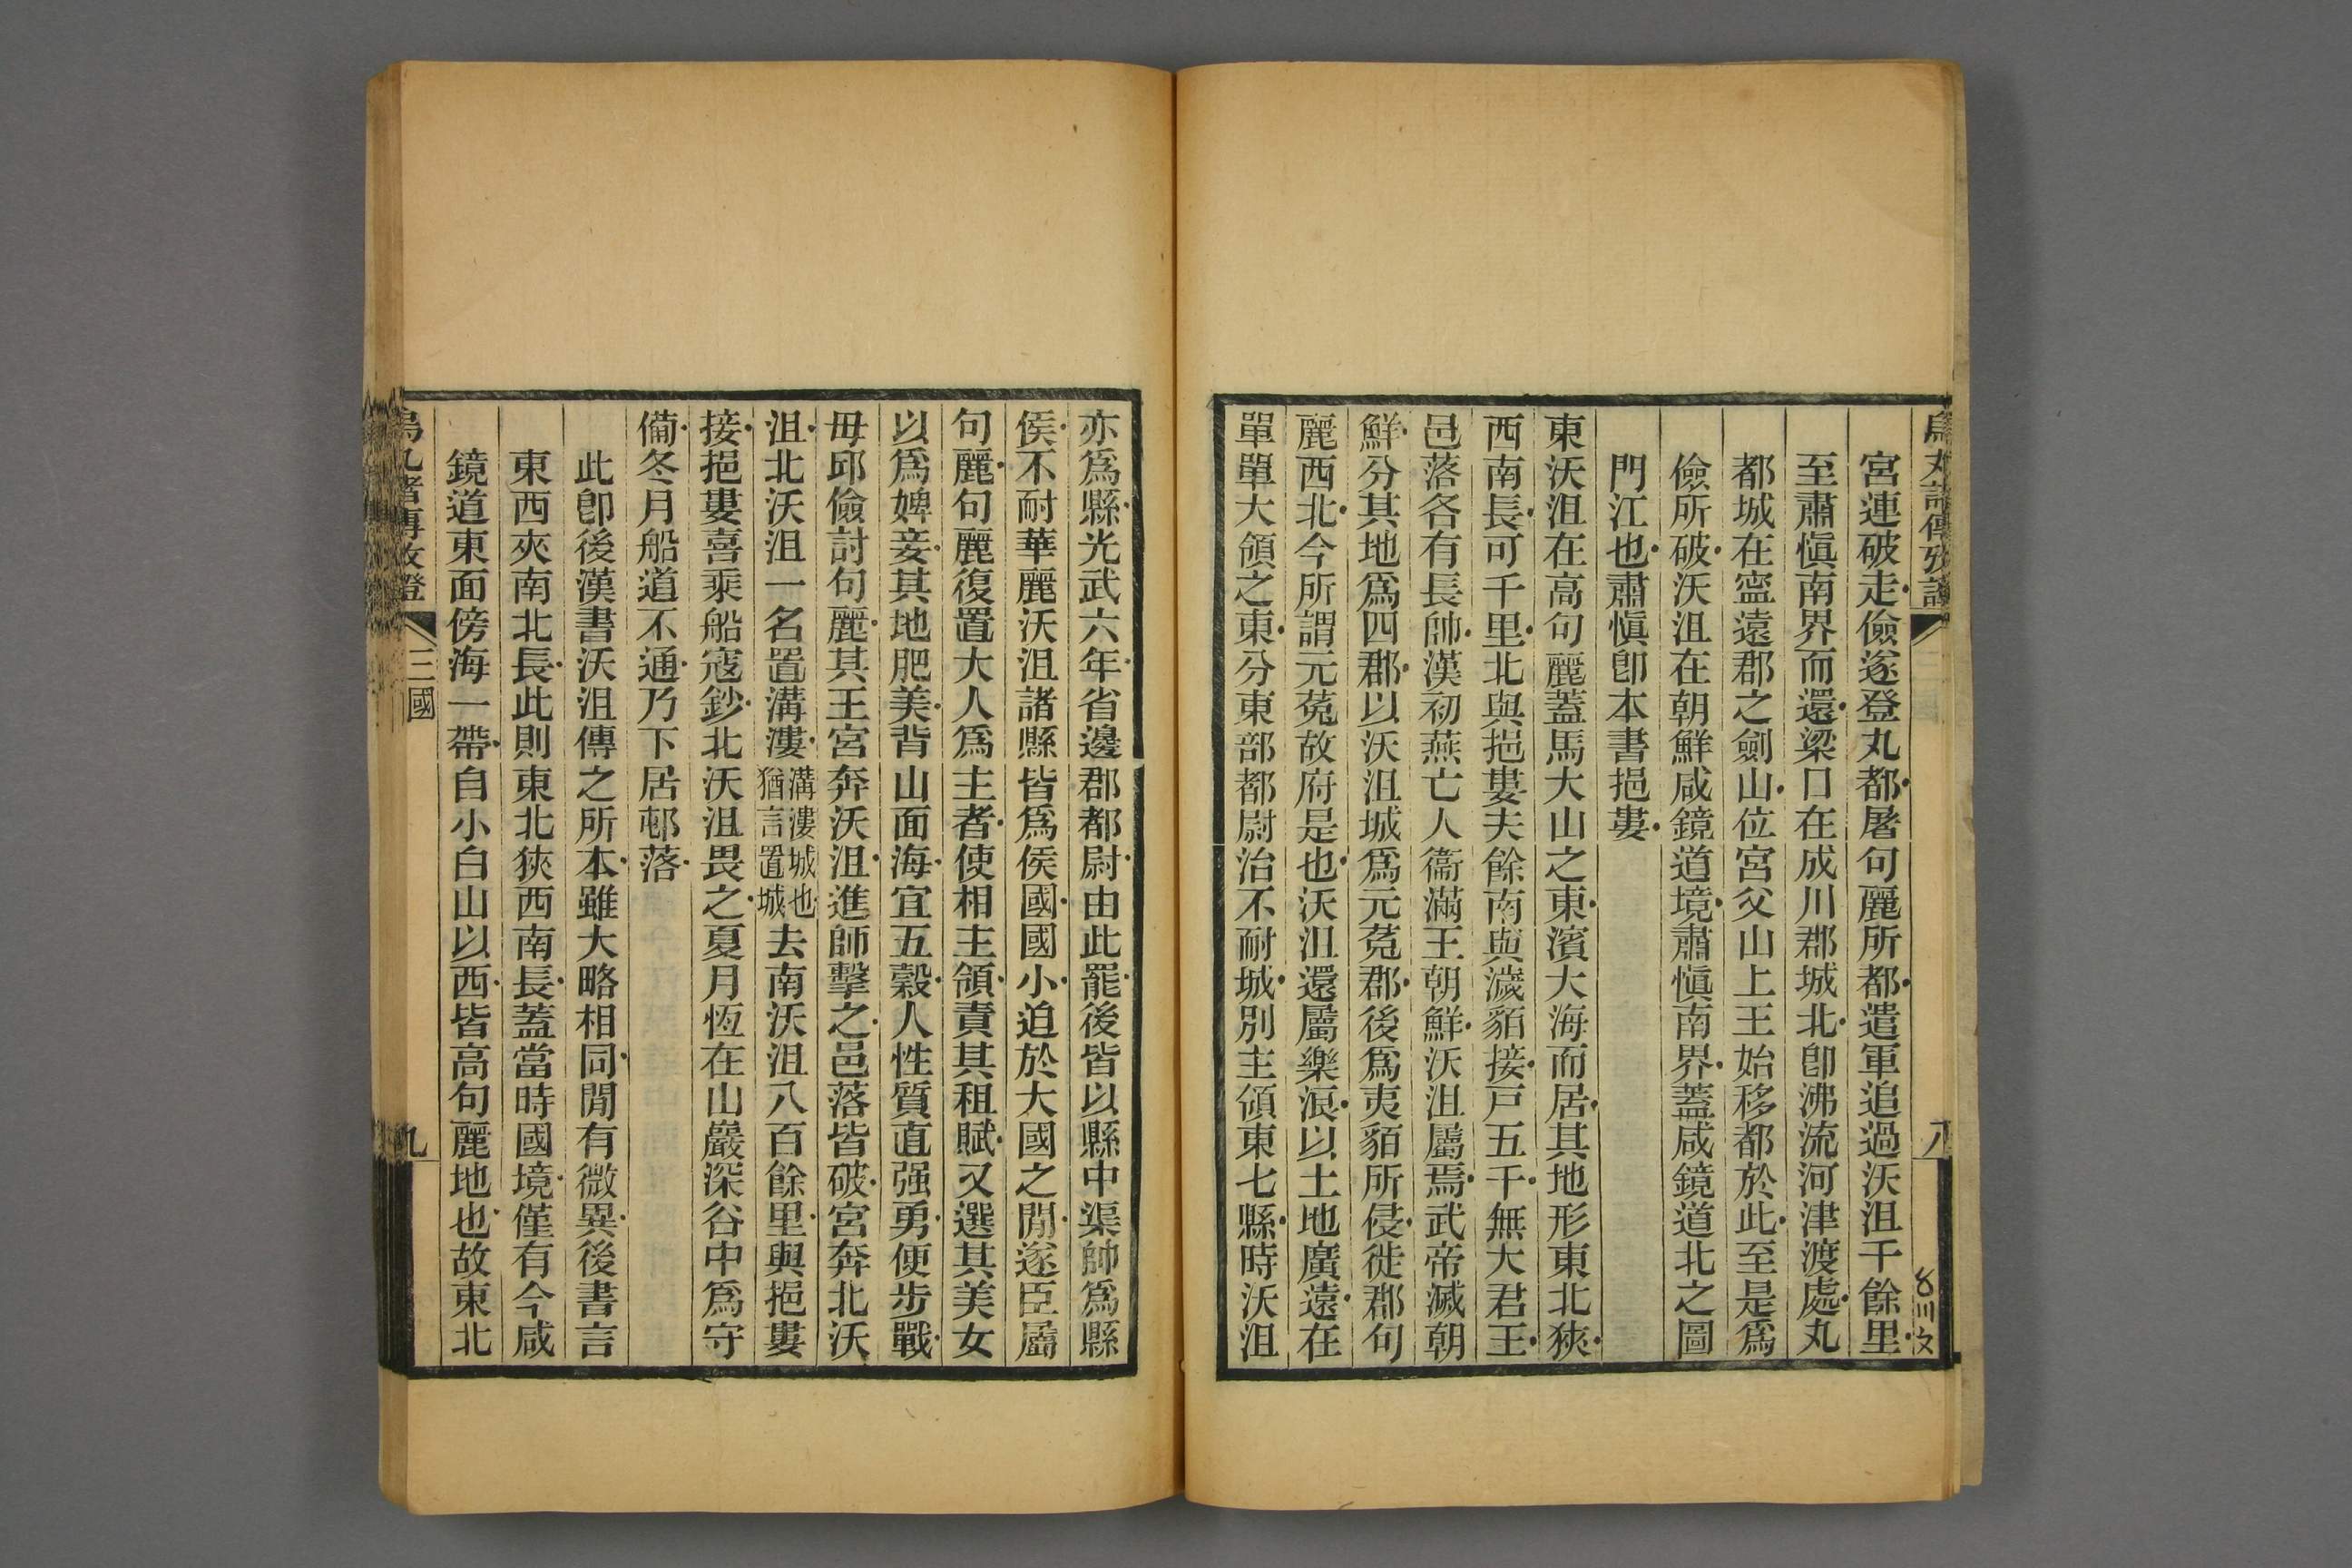 宮連破走儉遂登丸都屠句麗所都遣軍追過沃沮千餘里
至肅愼南界而還梁口在成川郡城北卽沸流河津渡處丸
都城在寧遠郡之劍山位宮父山上王始移都於此至是爲
儉所破沃沮在朝鮮咸鏡道境肅愼南界蓋咸鏡道北之圖
門江也肅愼卽本書挹婁
東沃沮在高句麗蓋馬大山之東濱大海而居其地形東北狹
西南長可千里北與挹婁夫餘南與濊貊接戸五千無大君王
邑落各有長帥漢初燕亡人衞滿王朝鮮沃沮屬焉武帝滅朝
鮮分其地爲四郡以沃沮城爲元菟郡後爲夷貊所侵徙郡句
麗西北今所謂元菟故府是也沃沮還屬樂浪以土地廣遠在
單單大領之東分東部都尉治不耐城別主領東七縣時沃沮
亦爲縣光武六年省邊郡都尉由此罷後皆以縣中渠帥爲縣
侯不耐華麗沃沮諸縣皆爲侯國國小迫於大國之閒遂臣屬
句麗句麗復置大人爲主者使相主領責其租賦又選其美女
以爲婢妾其地肥美背山面海宜五穀人性質直强勇便步戰
毋邱儉討句麗其王宮奔沃沮進師擊之邑落皆破宮奔北沃
沮北沃沮一名置溝漊溝漊城也猶言置城去南沃沮八百餘里與挹婁
接挹婁喜乘船寇鈔北沃沮畏之夏月恆在山巖深谷中爲守
備冬月船道不通乃下居邨落
此卽後漢書沃沮傳之所本雖大略相同閒有微異後書言
東西夾南北長此則東北狹西南長蓋當時國境僅有今咸
鏡道東面傍海一帶自小白山以西皆高句麗地也故東北
烏丸諸傳攷證
三國
九